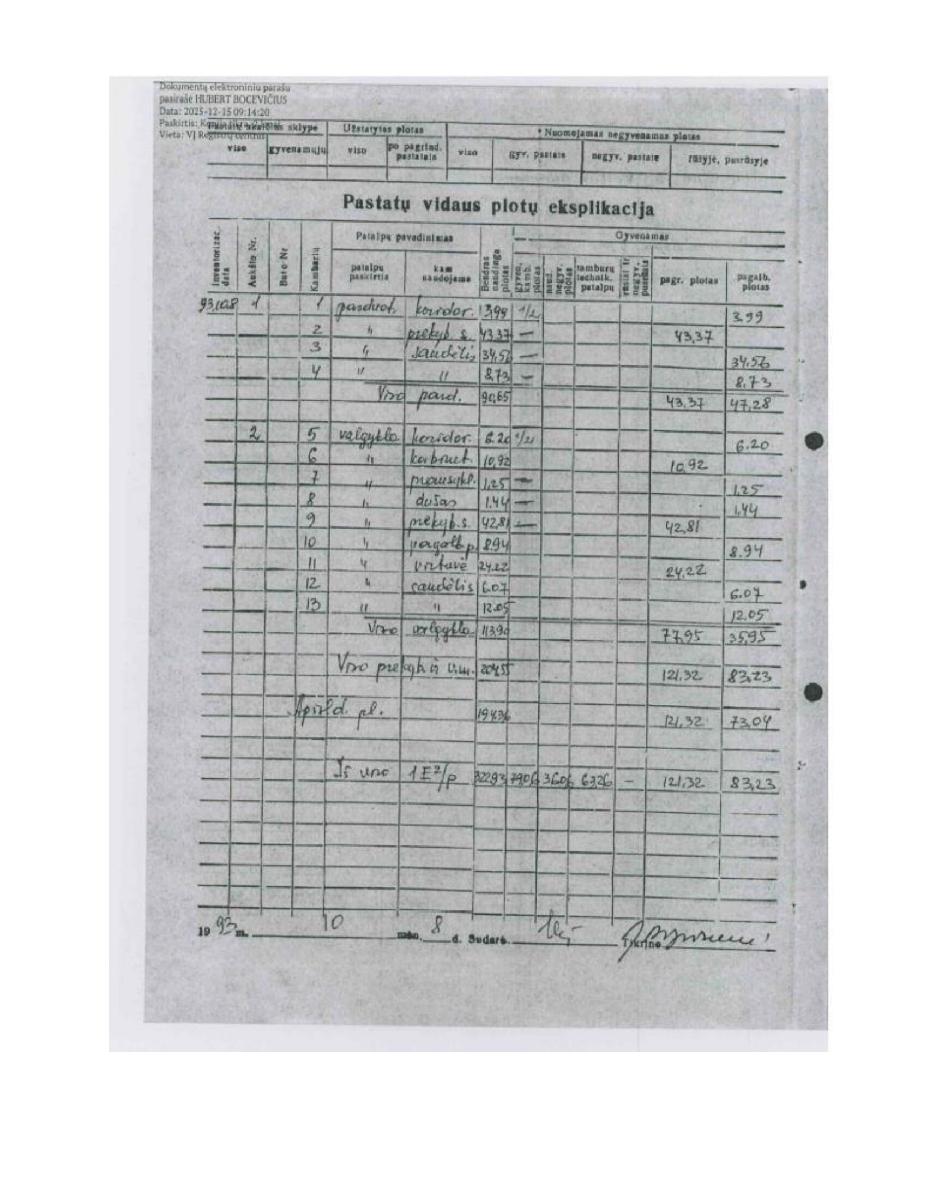 Dokumentą elektroniniu parašu
pasirašė HUBERT BOCEVIČIUS
Data: 2025-12-15 09:14:20
Paskirtis:
Vieta: VĮ Registrų centras
sklype Užstatytas plotas * Nuomojamas negyvenamas plotas
viso gyvenamųjų viso po pagrind. pastatais viso gyv. pastate negyv. pastate rūsyje, pusrūsyje
Pastatų vidaus plotų eksplikacija
Inventorizac. data Aukšto Nr. Buto Nr Kambarių Patalpų pavadinimas Bendras naudingas plotas Gyvenamas
patalpų paskirtis kam naudojama gyven. kamb. plotas naud. negyv. plotas tamburų technik. patalpų rūsiai ir negyv. pagr. plotas pagalb. plotas
93.10.8 1 1 koridor. 3,99 1/2 3.99
2 " prekyb. s. 43.37 — 43,37
3 " sandėlis 34,56 — 34.56
4 " " 8,73 — 8.73
Viso pard. 90,65 43,37 47,28
2 5 valgykla koridor. 6.20 1/2 6.20
6 " kabinet. 10,92 10,92
7 " prausykl. 1,25 — 1,25
8 " dušas 1.44 — 1,44
9 " prekyb. s. 42,81 — 42,81
10 " pagalb. p. 8.94 8.94
11 " virtuvė 24.22 24,22
12 " sandėlis 6.07 6.07
13 " " 12.05 12.05
Viso valgykla 113,90 77,95 35,95
Viso 204,55 121,32 83,23
Apšild. pl. 194,36 121,32 73,04
Iš viso 1E2/p 322,93 79,06 36,06 63,26 - 121,32 83,23
1993 m. 10 mėn. 8 d. Sudarė Tikrino